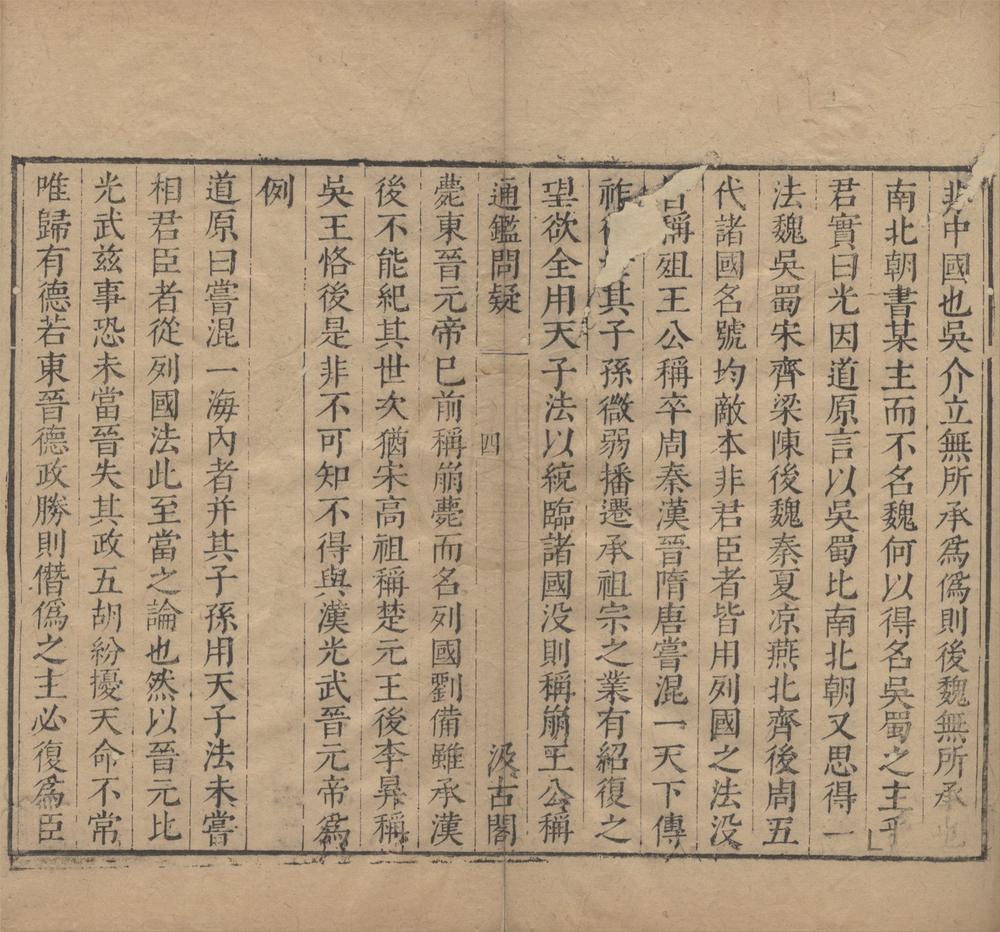 非中國也吳介立無所承爲僞則後魏無所承也
南北朝書某主而不名魏何以得名吳蜀之主乎
君實曰光因道原言以吳蜀比南北朝又思得一
法魏吳蜀宋齊梁陳後魏秦夏凉燕北齊後周五
代諸國名號均敵本非君臣者皆用列國之法没
皆稱殂王公稱卒周秦漢晉隋唐嘗混一天下傳
祚後其子孫微弱播遷承祖宗之業有紹復之
望欲全用天子法以統臨諸國没則稱崩王公稱
通鑑問疑 四 汲古閣
薨東晉元帝巳前稱崩薨而名列國劉備雖承漢
後不能紀其世次猶宋高祖稱楚元王後李昪稱
吳王恪後是非不可知不得與漢光武晉元帝爲
例
道原曰嘗混一海內者并其子孫用天子法未嘗
相君臣者從列國法此至當之論也然以晉元比
光武兹事恐未當晉失其政五胡紛擾天命不常
唯歸有德若東晉德政勝則僭僞之主必復爲臣